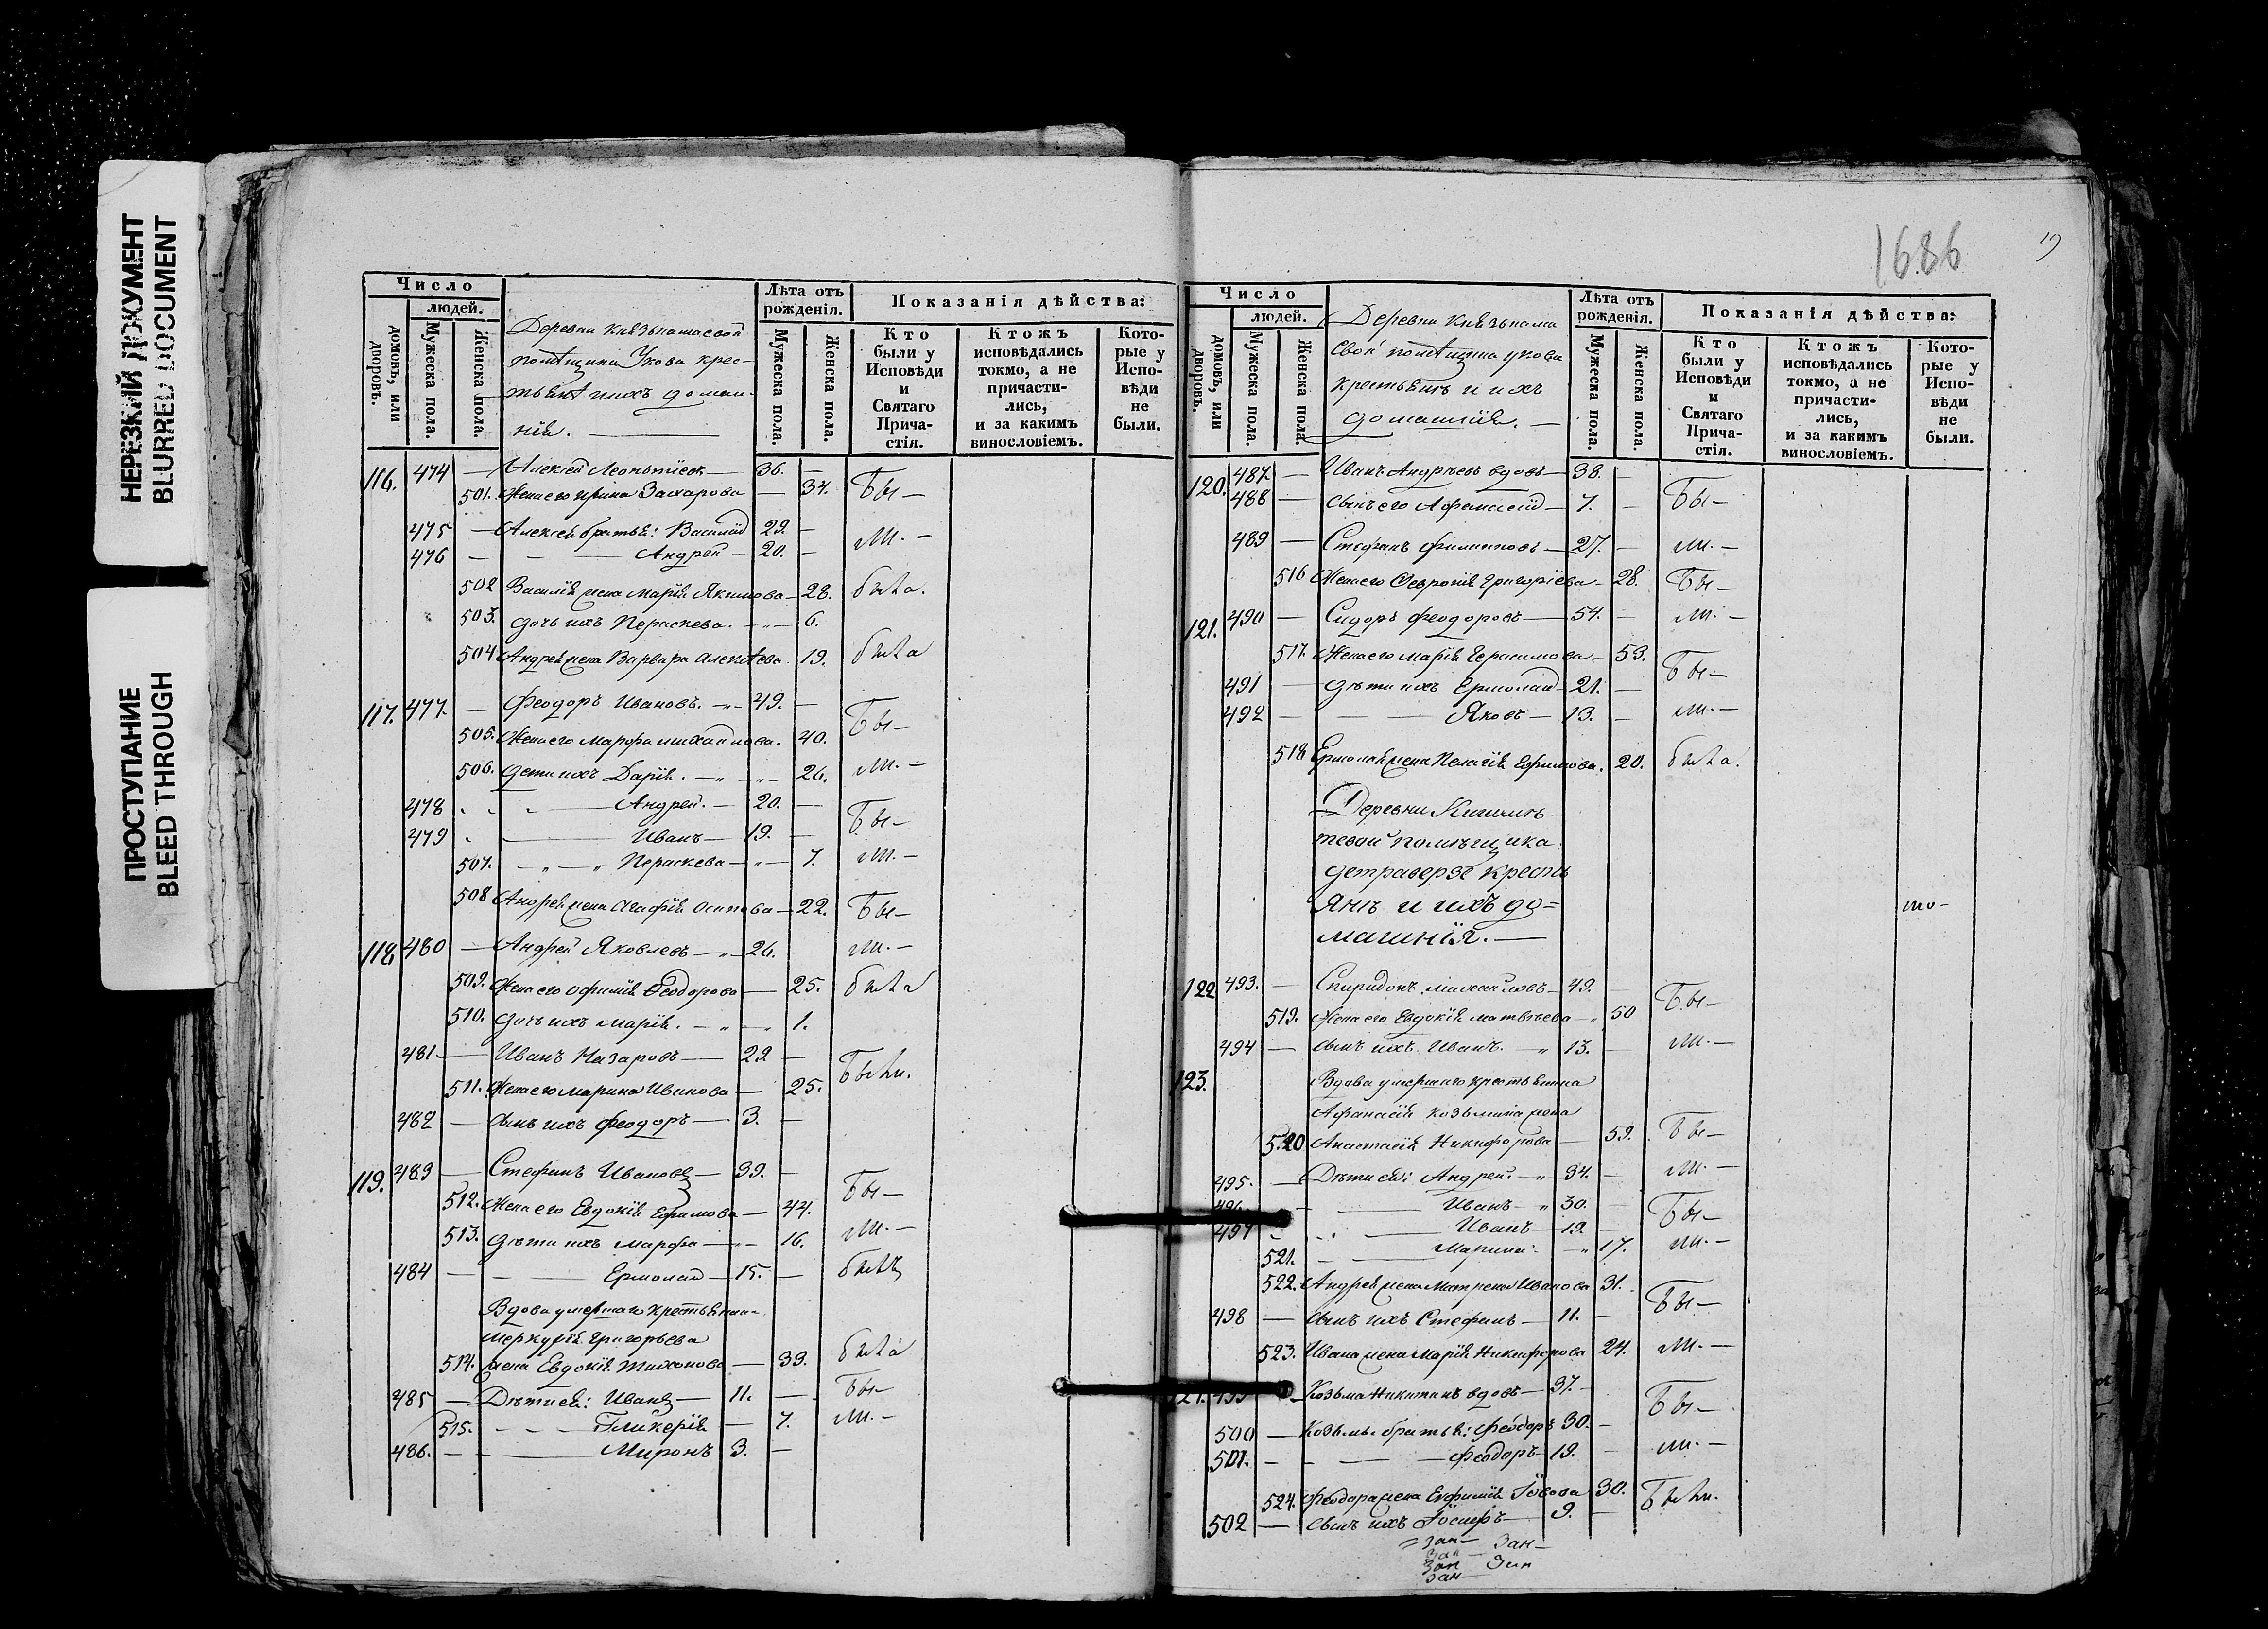 НЕРЕЗКИЙ ДОКУМЕНТ
BLURRED DOCUMENT
ПРОСТУПАНИЕ
BLEED THROUGH
Число
людей.
домовъ, или дворовъ.
Мужеска пола.
Женска пола.
Деревни Князьпамаевой
помѣщика Укова крес-
тьянѣ и ихъ домаш-
нія.
Лѣта отъ рожденія.
Мужеска пола.
Женска пола.
Показанія дѣйства:
Кто были у Исповѣди и Святаго Прича-стія.
Ктожъ исповѣдались токмо, а не причасти-лись, и за какимъ винословіемъ.
Кото-рые у Испо-вѣди не были.
116. 474 — Алексѣй Леонтьевъ — 36. —
501. Жена его Ирина Захарова — 34. Бы—
475 — Алексѣя братья: Василій 29. — ли. —
476 — — — Андрей — 20. —
502 Василія жена Марія Якимова — 28. была.
503. дочь ихъ Пераскева. — 6.
504 Андрея жена Варвара Алексѣева. 19. была
117. 477. — Феодоръ Ивановъ. — 49. —
505. Жена его Марфа Михаилова. 40. Бы—
506. Дети ихъ Дарія. — 26. ли. —
478 — Андрей. — 20. —
479 — Иванъ — 19. — Бы—
507. — Пераскева — 7. ли. —
508 Андрея жена Агафія Осипова — 22. Бы—
118 480 — Андрей Яковлевъ — 26. ли. —
509. Жена его Офимія Феодорова — 25. была
510. дочь ихъ Марія. — 1.
481 — Иванъ Назаровъ — 29. —
511. Жена его Марина Иванова — 25. Были.
482 — сынъ ихъ Феодоръ — 3. —
119. 483 — Стефанъ Ивановъ — 39. —
512. Жена его Евдокія Ефимова — 44. Бы—
513. дѣти ихъ Марфа — 16. ли. —
484 — — Ермолай — 15. — былъ
Вдова умершаго крестьянина
Меркурія Григорьева
514. жена Евдокія Тихонова — 39. была
485 — Дѣти ея: Иванъ — 11. — Бы—
515. — — Гликерія — 7. ли. —
486. — — Миронъ 3. —
1686
19
Число
людей.
домовъ, или дворовъ.
Мужеска пола.
Женска пола.
Деревни Князьпама
свой помѣщика Укова
крестьянъ и ихъ
домашнія. —
Лѣта отъ рожденія.
Мужеска пола.
Женска пола.
Показанія дѣйства:
Кто были у Исповѣди и Святаго Прича-стія.
Ктожъ исповѣдались токмо, а не причасти-лись, и за какимъ винословіемъ.
Кото-рые у Испо-вѣди не были.
120. 487. — Иванъ Андреевъ вдовъ — 38. —
488 — сынъ его Афанасій — 7. — Бы—
489 — Стефанъ Филипповъ — 27. — ли. —
516 Жена его Феврония Григоріева — 28. Бы—
121. 490 — Сидоръ Феодоровъ — 54. — ли. —
517. Жена его Марія Герасимова — 53.
491 — дѣти ихъ Ермолай — 21. — Бы—
492 — — Яковъ — 13. — ли. —
518 Ермолая жена Пелагія Ефимова. 20. была.
Деревни Кигимѣ-
тевой помѣщика
детраверзе кресть
янъ и ихъ до=
машнія. —
122 493. — Спиридонъ Михайловъ — 49. —
519. Жена его Евдокія Матвѣева — 50 Бы—
494 — сынъ ихъ Иванъ. — 13. — ли. —
123. Вдова умершаго крестьянина
Афанасія Козьмина жена
520 Анастасія Никифорова — 59. Бы—
495. — Дѣти ея: Андрей. — 34. — ли. —
496 — — Иванъ — 30. —
497 — — Иванъ — 19 — Бы—
521. — Марина. — 17. ли. —
522. Андрея жена Матрена Иванова 31.
498 — сынъ ихъ Стефанъ — 11. — Бы—
523. Ивана жена Марія Никифорова 24. ли. —
499 — Козьма Никитинъ вдовъ — 37. —
500 — Козьмы братья: Феодоръ 30. — Бы—
501. — — Феодоръ 19. — ли. —
524. Феодора жена Евфимія Іовова 30. Были.
502 — сынъ ихъ Іосифъ — 9. —
Зан— Зан—
Зан